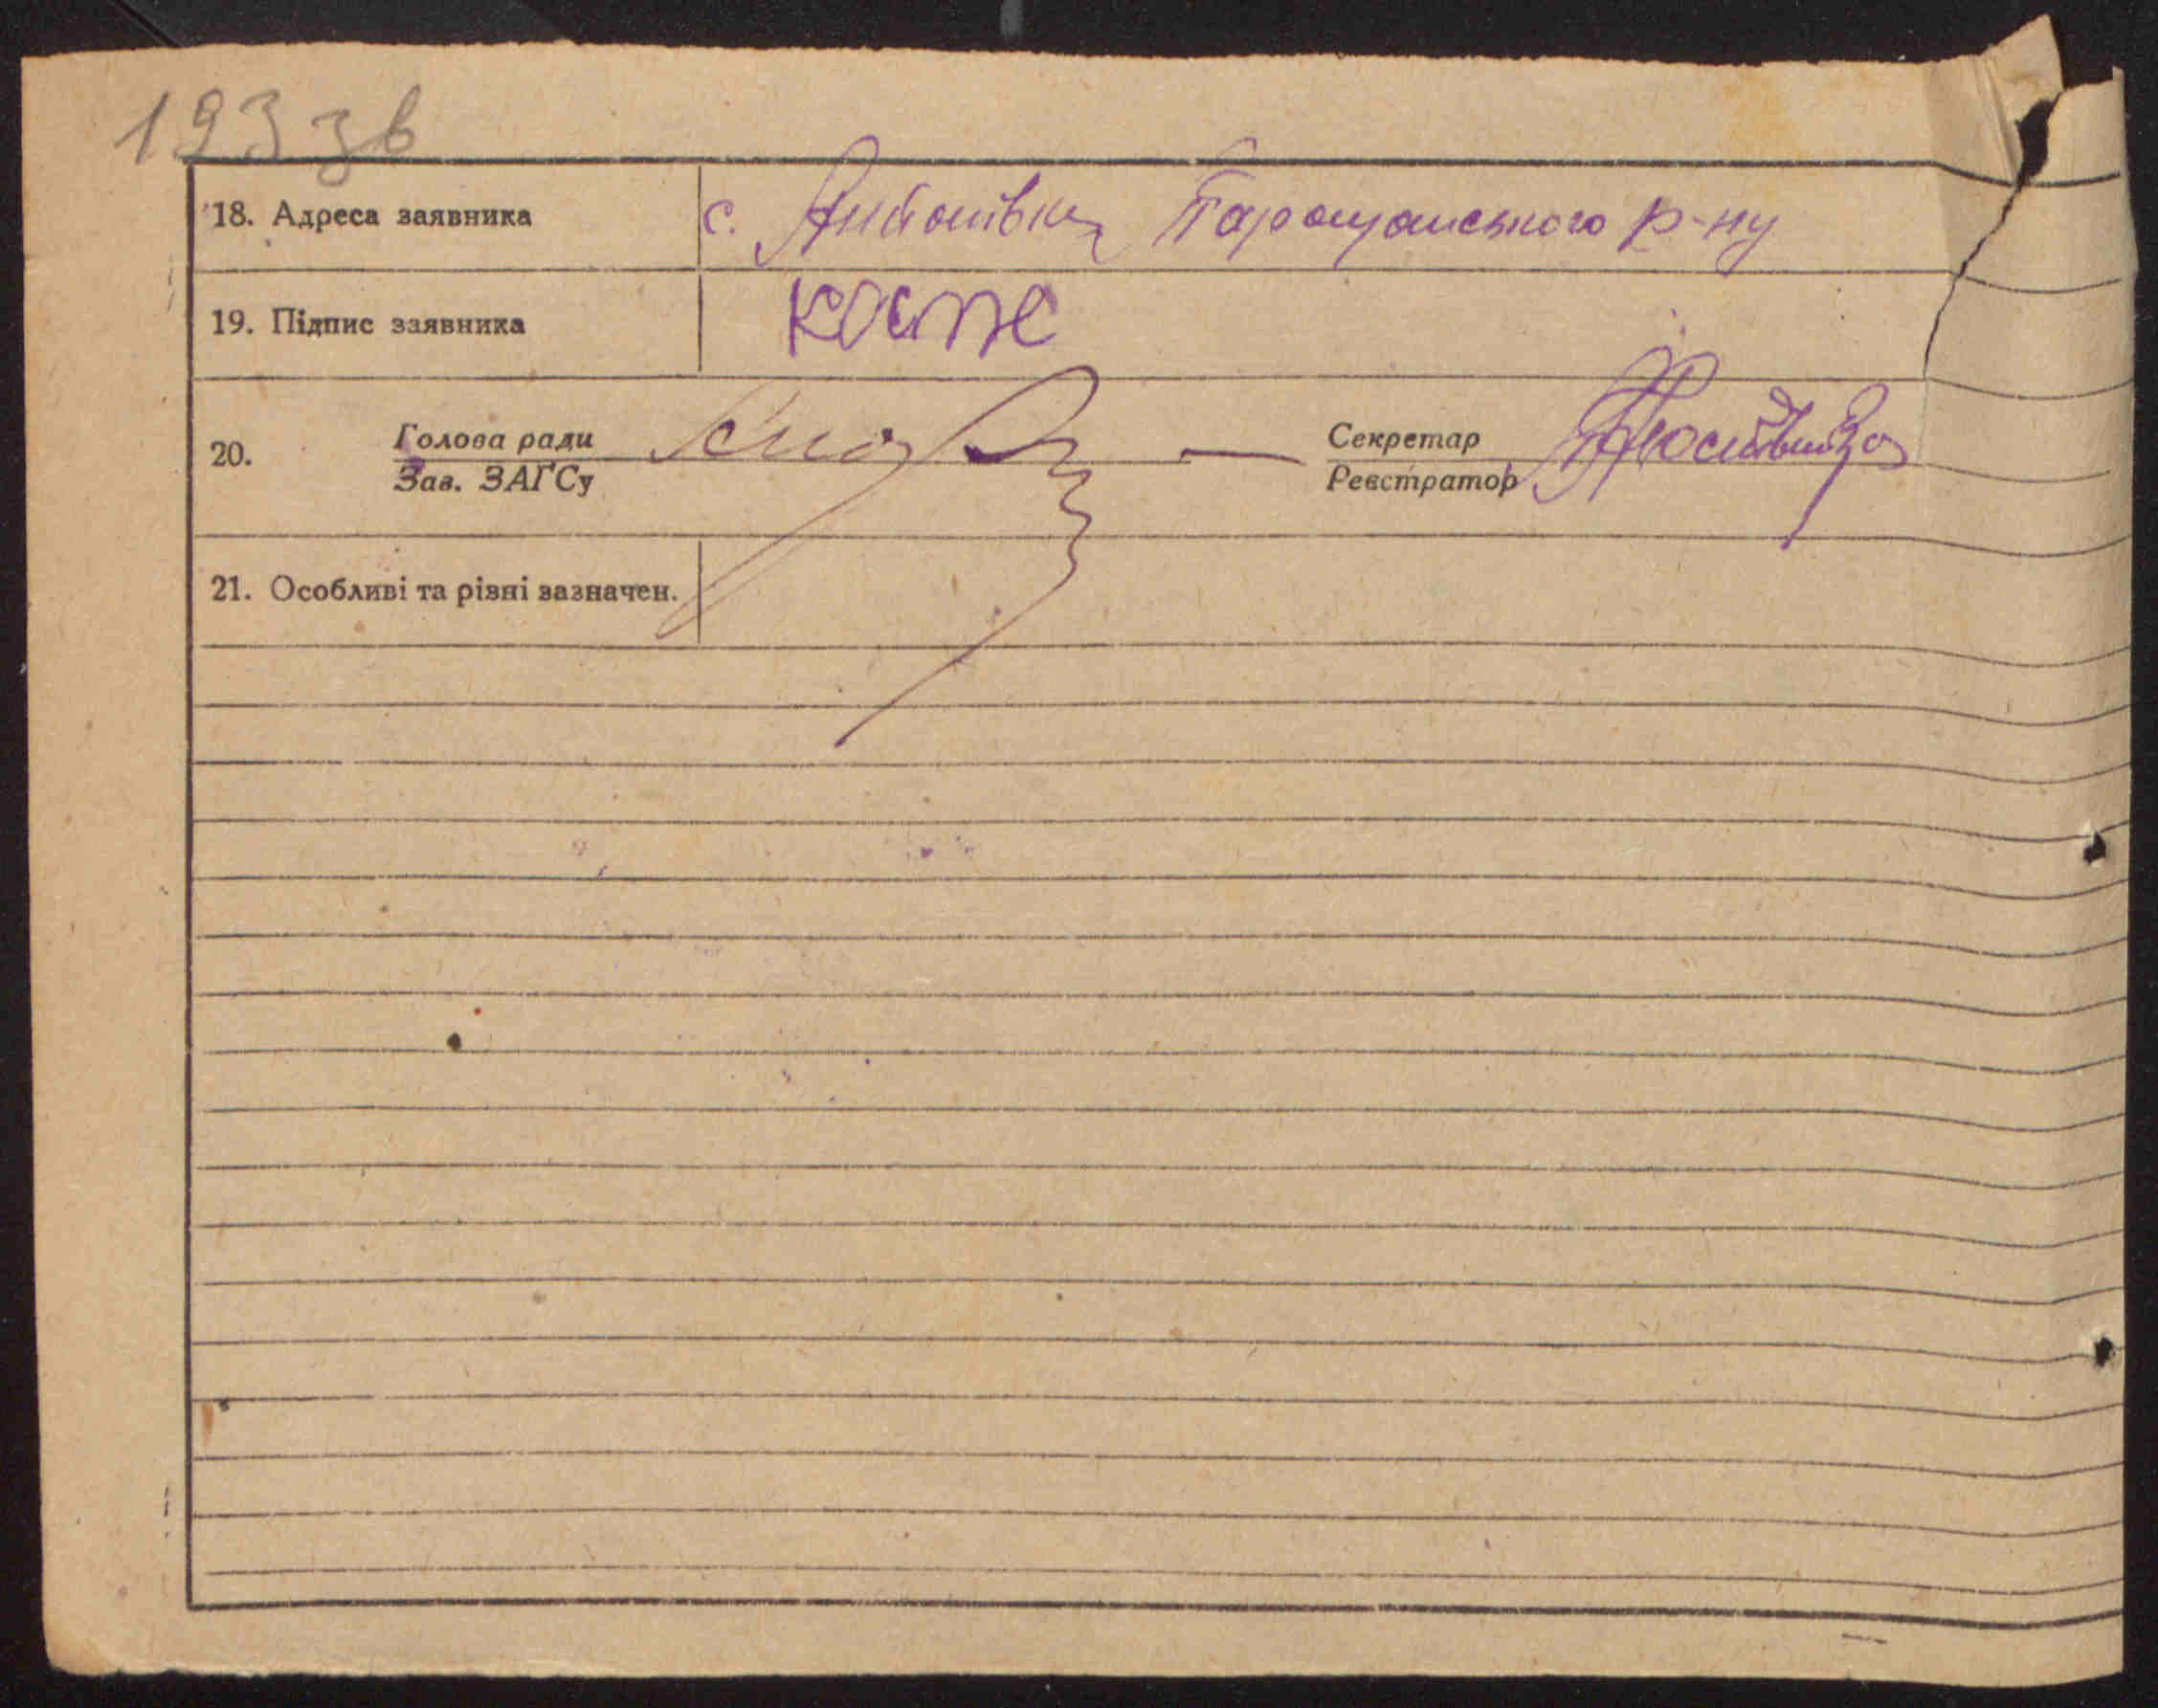 193 зв
18. Адреса заявника с. Антонівка Таращанського р-ну
19. Підпис заявника
20. Голова ради Секретар
Зав. ЗАГСу Реєстратор
21. Особливі та різні зазначен.